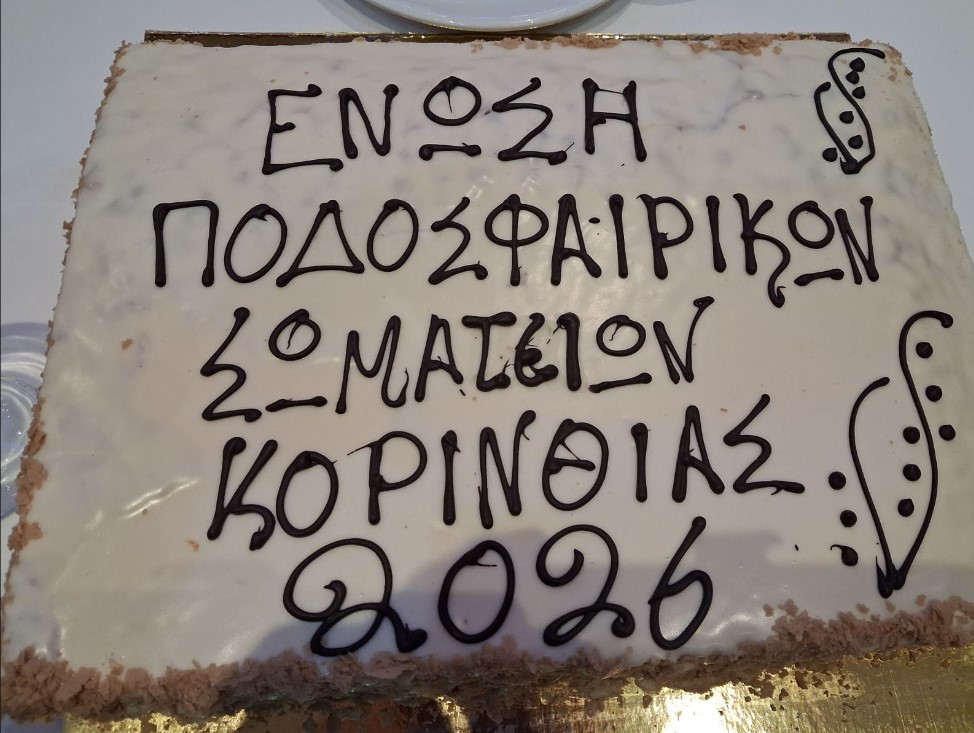 ΕΝΩΣΗ
ΠΟΔΟΣΦΑΙΡΙΚΩΝ
ΣΩΜΑΤΕΙΩΝ
ΚΟΡΙΝΘΙΑΣ
2026